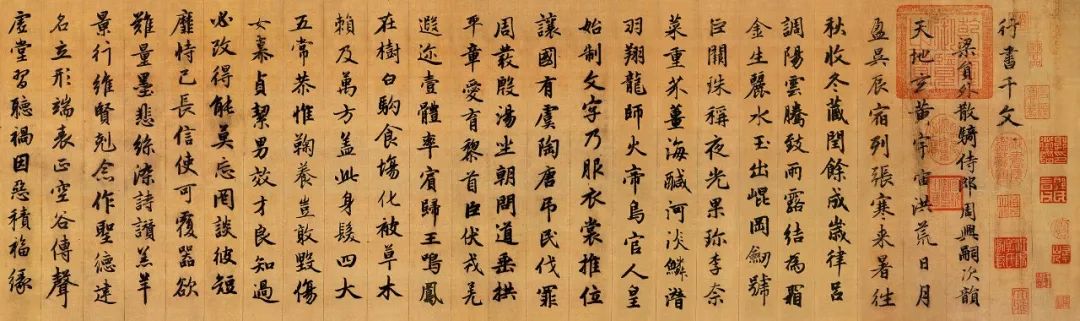 行書千文
梁員外散騎侍郎周興嗣次韻
天地玄黃宇宙洪荒日月
盈昃辰宿列張寒来暑往
秋收冬藏閏餘成歲律呂
調陽雲騰致雨露結為霜
金生麗水玉出崐岡劒號
巨闕珠稱夜光果珎李柰
菜重芥薑海醎河淡鱗潛
羽翔龍師火帝鳥官人皇
始制文字乃服衣裳推位
讓國有虞陶唐弔民伐罪
周發殷湯坐朝問道垂拱
平章愛育黎首臣伏戎羌
遐迩壹體率賓歸王鳴鳳
在樹白駒食場化被草木
賴及萬方盖此身髮四大
五常恭惟鞠養豈敢毀傷
女慕貞潔男效才良知過
必改得能莫忘罔談彼短
靡恃己長信使可覆器欲
難量墨悲絲染詩讚羔羊
景行維賢剋念作聖德建
名立形端表正空谷傳聲
虛堂習聽禍因惡積福緣